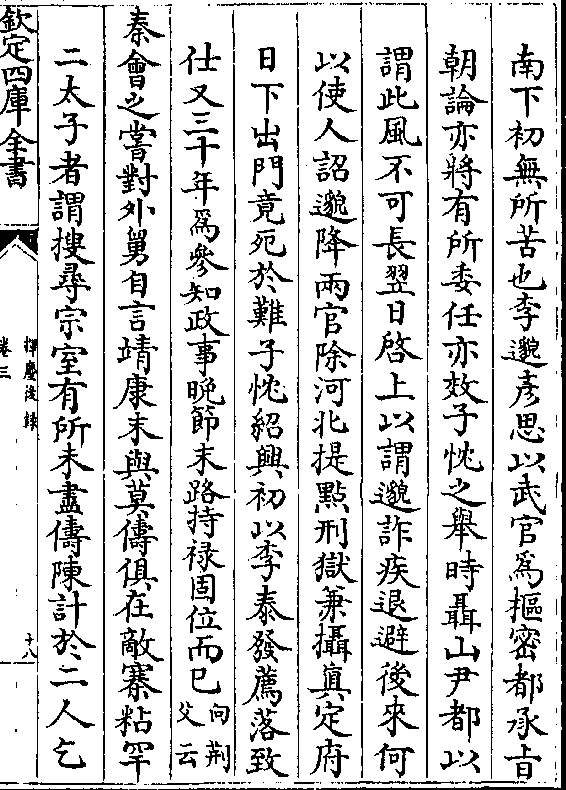 南下初無所苦也李邈彦思以武官爲樞密都承旨
朝論亦將有所委任亦效子忱之舉時聶山尹都以
謂此風不可長翌日啓上以謂邈詐疾退避後來何
以使人詔邈降兩官除河北提點刑獄兼攝真定府
日下出門竟死於難子忱紹興初以李泰發薦落致
仕又三十年爲參知政事晩節末路持禄固位而已向荆父云
秦會之嘗對外舅自言靖康末與莫儔俱在敵寨粘罕
二太子者謂搜尋宗室有所未盡儔陳計於二人乞
欽定四庫全書
揮麈後録
卷三
十八